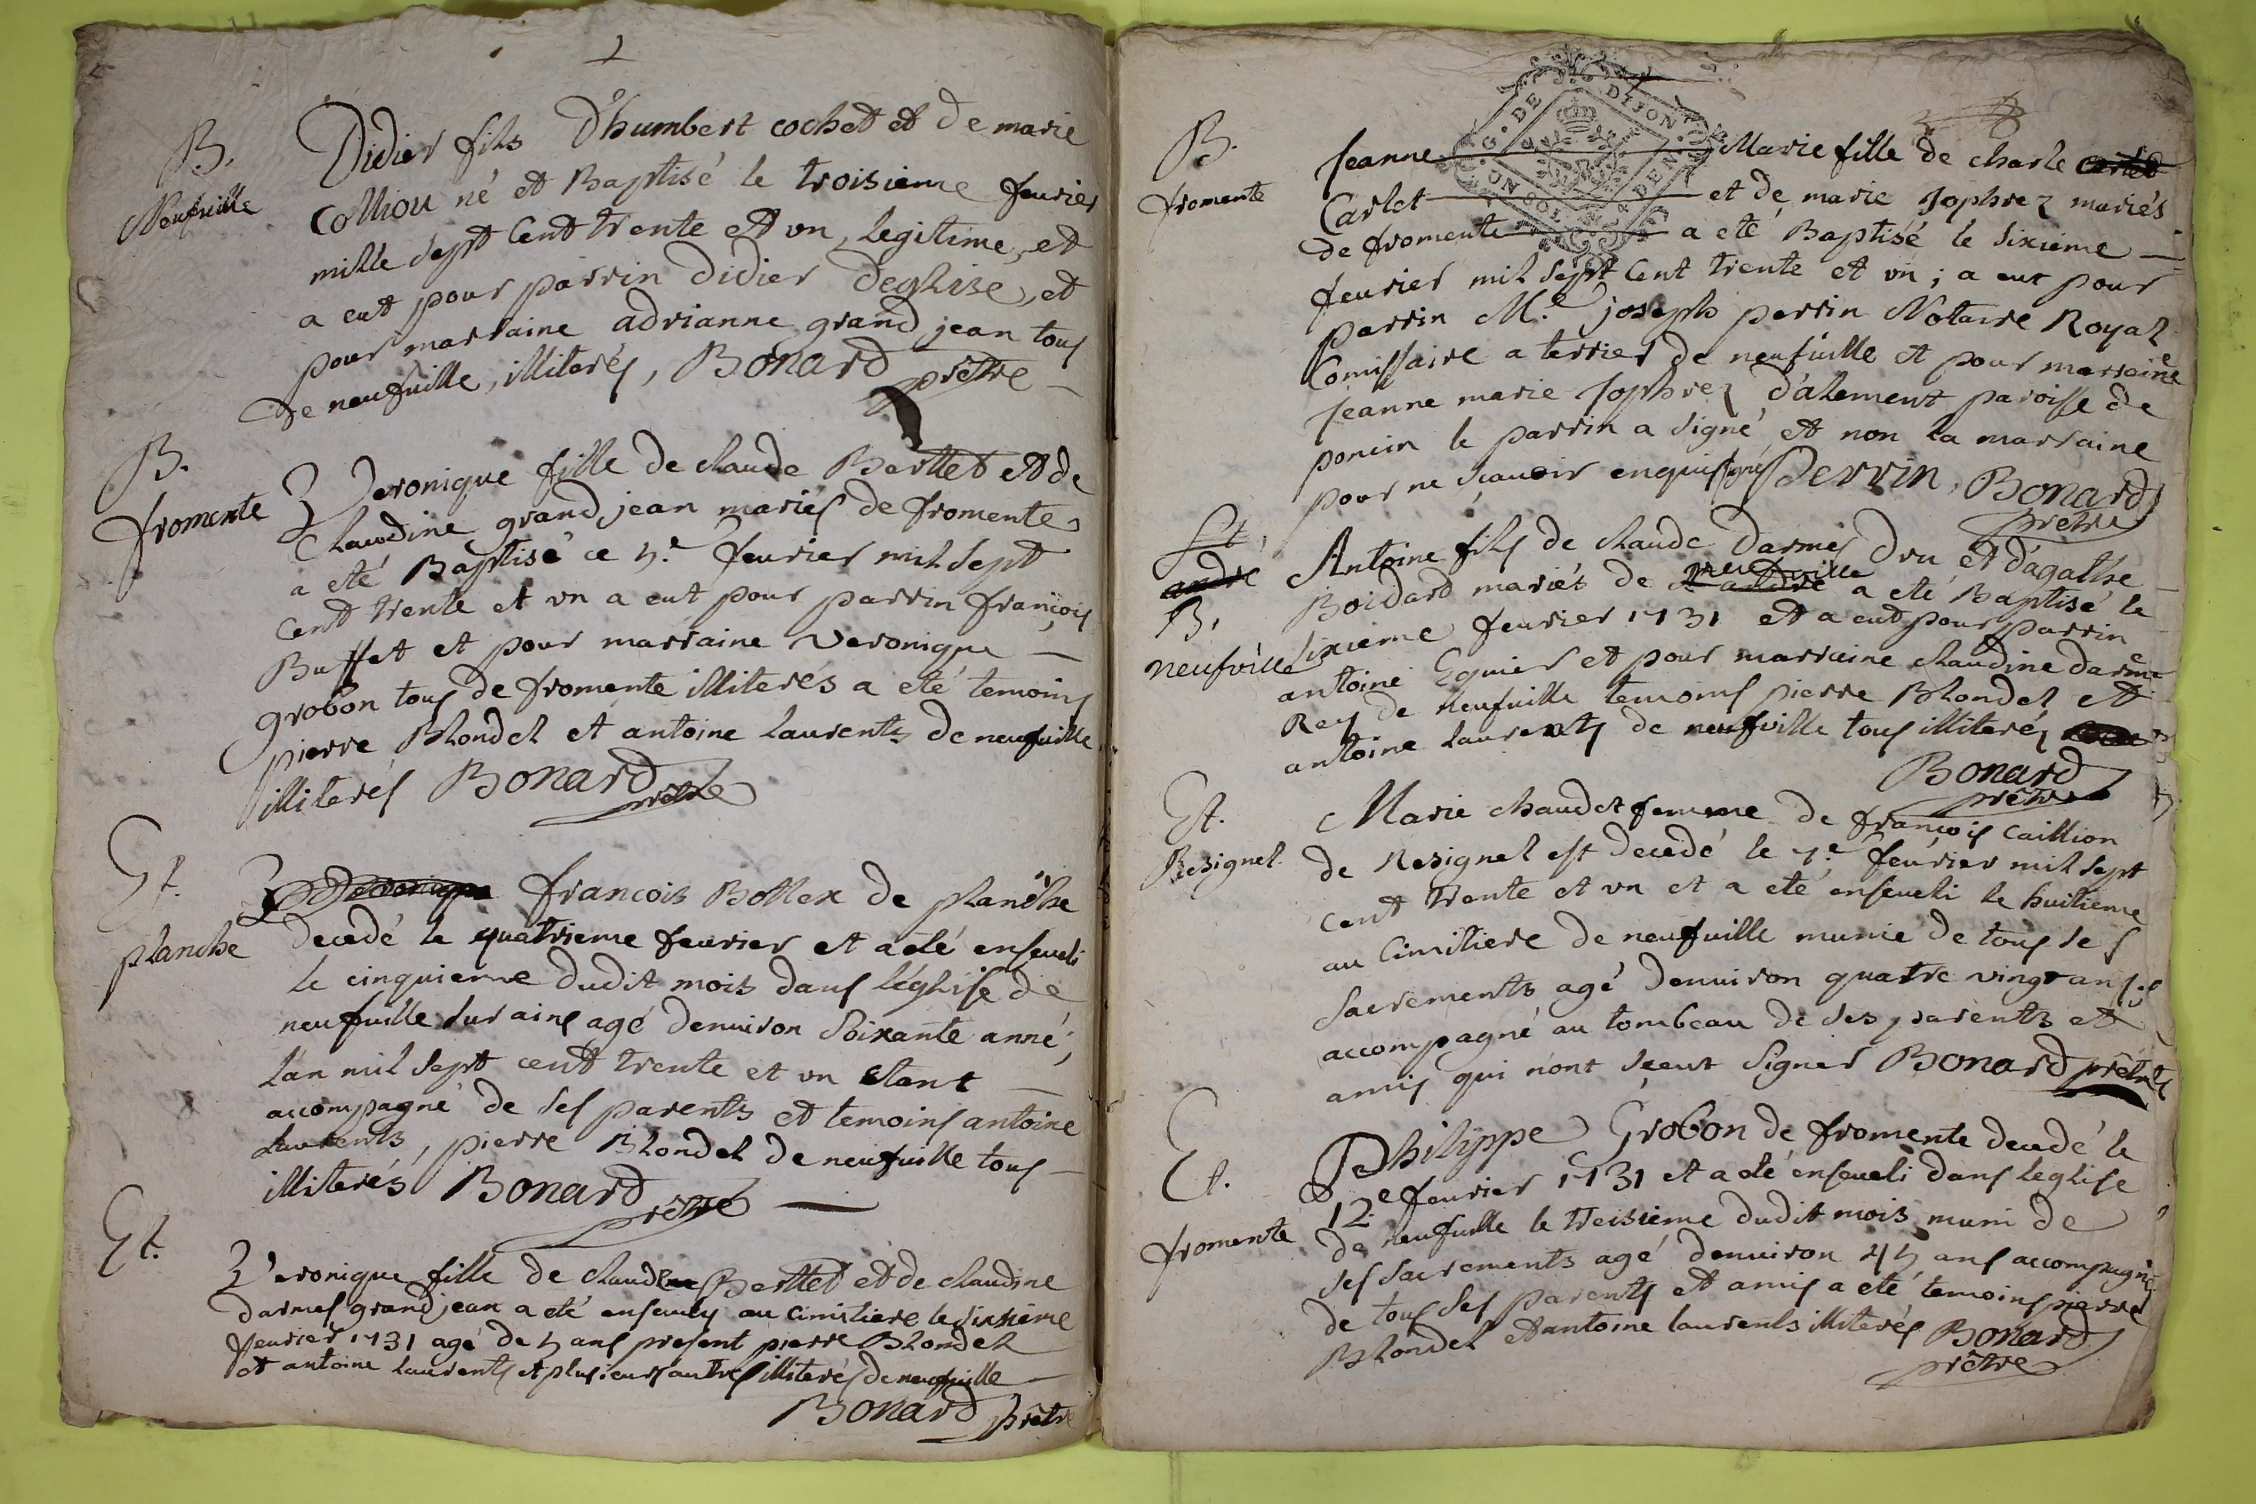 B.
Neufuille
Didier fils D'humbert cochet et de marie
Colliou né et Baptisé le troisieme feurier
mille sept Cent trente et vn, legitime, et
a eut pour parrin didier deglise, et
pour marraine adrianne grand jean tous
de neufuille, illiterés, Bonard
prêtre
B.
fromente
Veronique fille de claude Berttet et de
Claudine grand jean mariés de fromente
a eté Baptisé ce 5.e feurier mil sept
cent trente et vn a eut pour parrin françois
Buffet et pour marraine veronique
grobon tous de fromente illiterés a eté temoins
pierre Blondel et antoine Laurents de neufuille
illiterés Bonard
prêtre
Et.
planche
francois Bollex de planche
decedé le quatrieme feurier et a eté enseueli
le cinquieme dudit mois dans l'église de
neufuille sur ains agé denuiron Soixante anné,
l'an mil sept cent trente et vn etant
accompagné de ses parents et temoins antoine
Laurents, pierre Blondel de neufuille tous
illiterés Bonard
prêtre
Et.
Veronique fille de claude Berttet et de claudine
darmes grand jean a eté enseuely au cimitiere le sixsieme
feurier 1731 agé de 5 ans present pierre Blondel
et antoine Laurents et plusieurs autres illiterés de neufuille
Bonard prêtre
G. DE DIJON
UN SOL 4 DEN
B.
fromente
Jeanne Marie fille de charle
Carlet et de marie Jophrez mariés
de fromente a eté Baptisé le sixieme
feurier mil sept Cent trente et vn ; a eut pour
parrin M.e joseph perrin Notaire Royal
Comissaire a terrier de neufuille et pour marraine
Jeanne marie Jophrez d'alement paroisse de
poncin le parrin a signé et non la marraine
pour ne scauoir enquis Perrin, Bonard
prêtre
St
andré
B.
neufville
Antoine fils de claude Darmes Dru et d'agathe
neufville
Boidard mariés de St andré a eté Baptisé le
sixieme feurier 1731 et a eut pour parrin
antoine Eguier et pour marraine claudine darme
Rey de neufuille temoins pierre Blondel et
antoine laurents de neufville tous illiterés
Bonard
prêtre
Et.
Resignel
Marie chaudet femme de françois Caillion
de Resignel est decedé le 7.e feurier mil sept
cent trente et vn et a eté enseueli le huitieme
au Cimitiere de neufuille munie de tous ses
sacrements agé denuiron quatre vingt ans
accompagné au tombeau de ses parents et
amis qui n'ont sçeut signer Bonard prêtre
Et.
fromente
Philippe Grobon de fromente decedé le
12.e feurier 1731 et a eté enseueli dans leglise
de neufuille le treisieme dudit mois muni de
ses sacrements agé denuiron 45 ans accompagné
de tous ses parents et amis a eté temoins pierre
Blondel et antoine laurents illiterés Bonard
prêtre